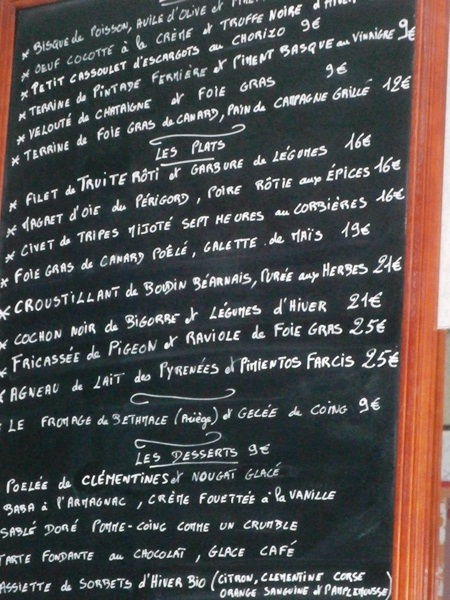 * BISQUE de POISSON, HUILE d'OLIVE et
* OEUF COCOTTE à la CRÈME et TRUFFE NOIRE d'HIVER
* PETIT CASSOULET d'ESCARGOTS au CHORIZO 9€
* TERRINE de PINTADE FERMIÈRE et PIMENT BASQUE au VINAIGRE 9€
* VELOUTÉ de CHATAIGNE et FOIE GRAS 9€
* TERRINE de FOIE GRAS de CANARD, PAIN de CAMPAGNE GRILLÉ 12€
LES PLATS
* FILET de TRUITE RÔTI et GARBURE de LÉGUMES 16€
* MAGRET d'OIE du PÉRIGORD, POIRE RÔTIE aux ÉPICES 16€
* CIVET de TRIPES MIJOTÉ SEPT HEURES au CORBIÈRES 16€
* FOIE GRAS de CANARD POÊLÉ, GALETTE de MAÏS 19€
* CROUSTILLANT de BOUDIN BÉARNAIS, PURÉE aux HERBES 21€
* COCHON NOIR de BIGORRE et LÉGUMES d'HIVER 21€
* FRICASSÉE de PIGEON et RAVIOLE de FOIE GRAS 25€
* AGNEAU de LAIT des PYRENÉES et PIMIENTOS FARCIS 25€
LE FROMAGE de BETHMALE (Ariège) et GELÉE de COING 9€
LES DESSERTS 9€
POELÉE de CLÉMENTINES et NOUGAT GLACÉ
BABA à l'ARMAGNAC, CRÈME FOUETTÉE à la VANILLE
SABLÉ DORÉ POMME-COING COMME UN CRUMBLE
TARTE FONDANTE au CHOCOLAT, GLACE CAFÉ
ASSIETTE de SORBETS d'HIVER BIO (CITRON, CLEMENTINE CORSE
ORANGE SANGUINE et PAMPLEMOUSSE)